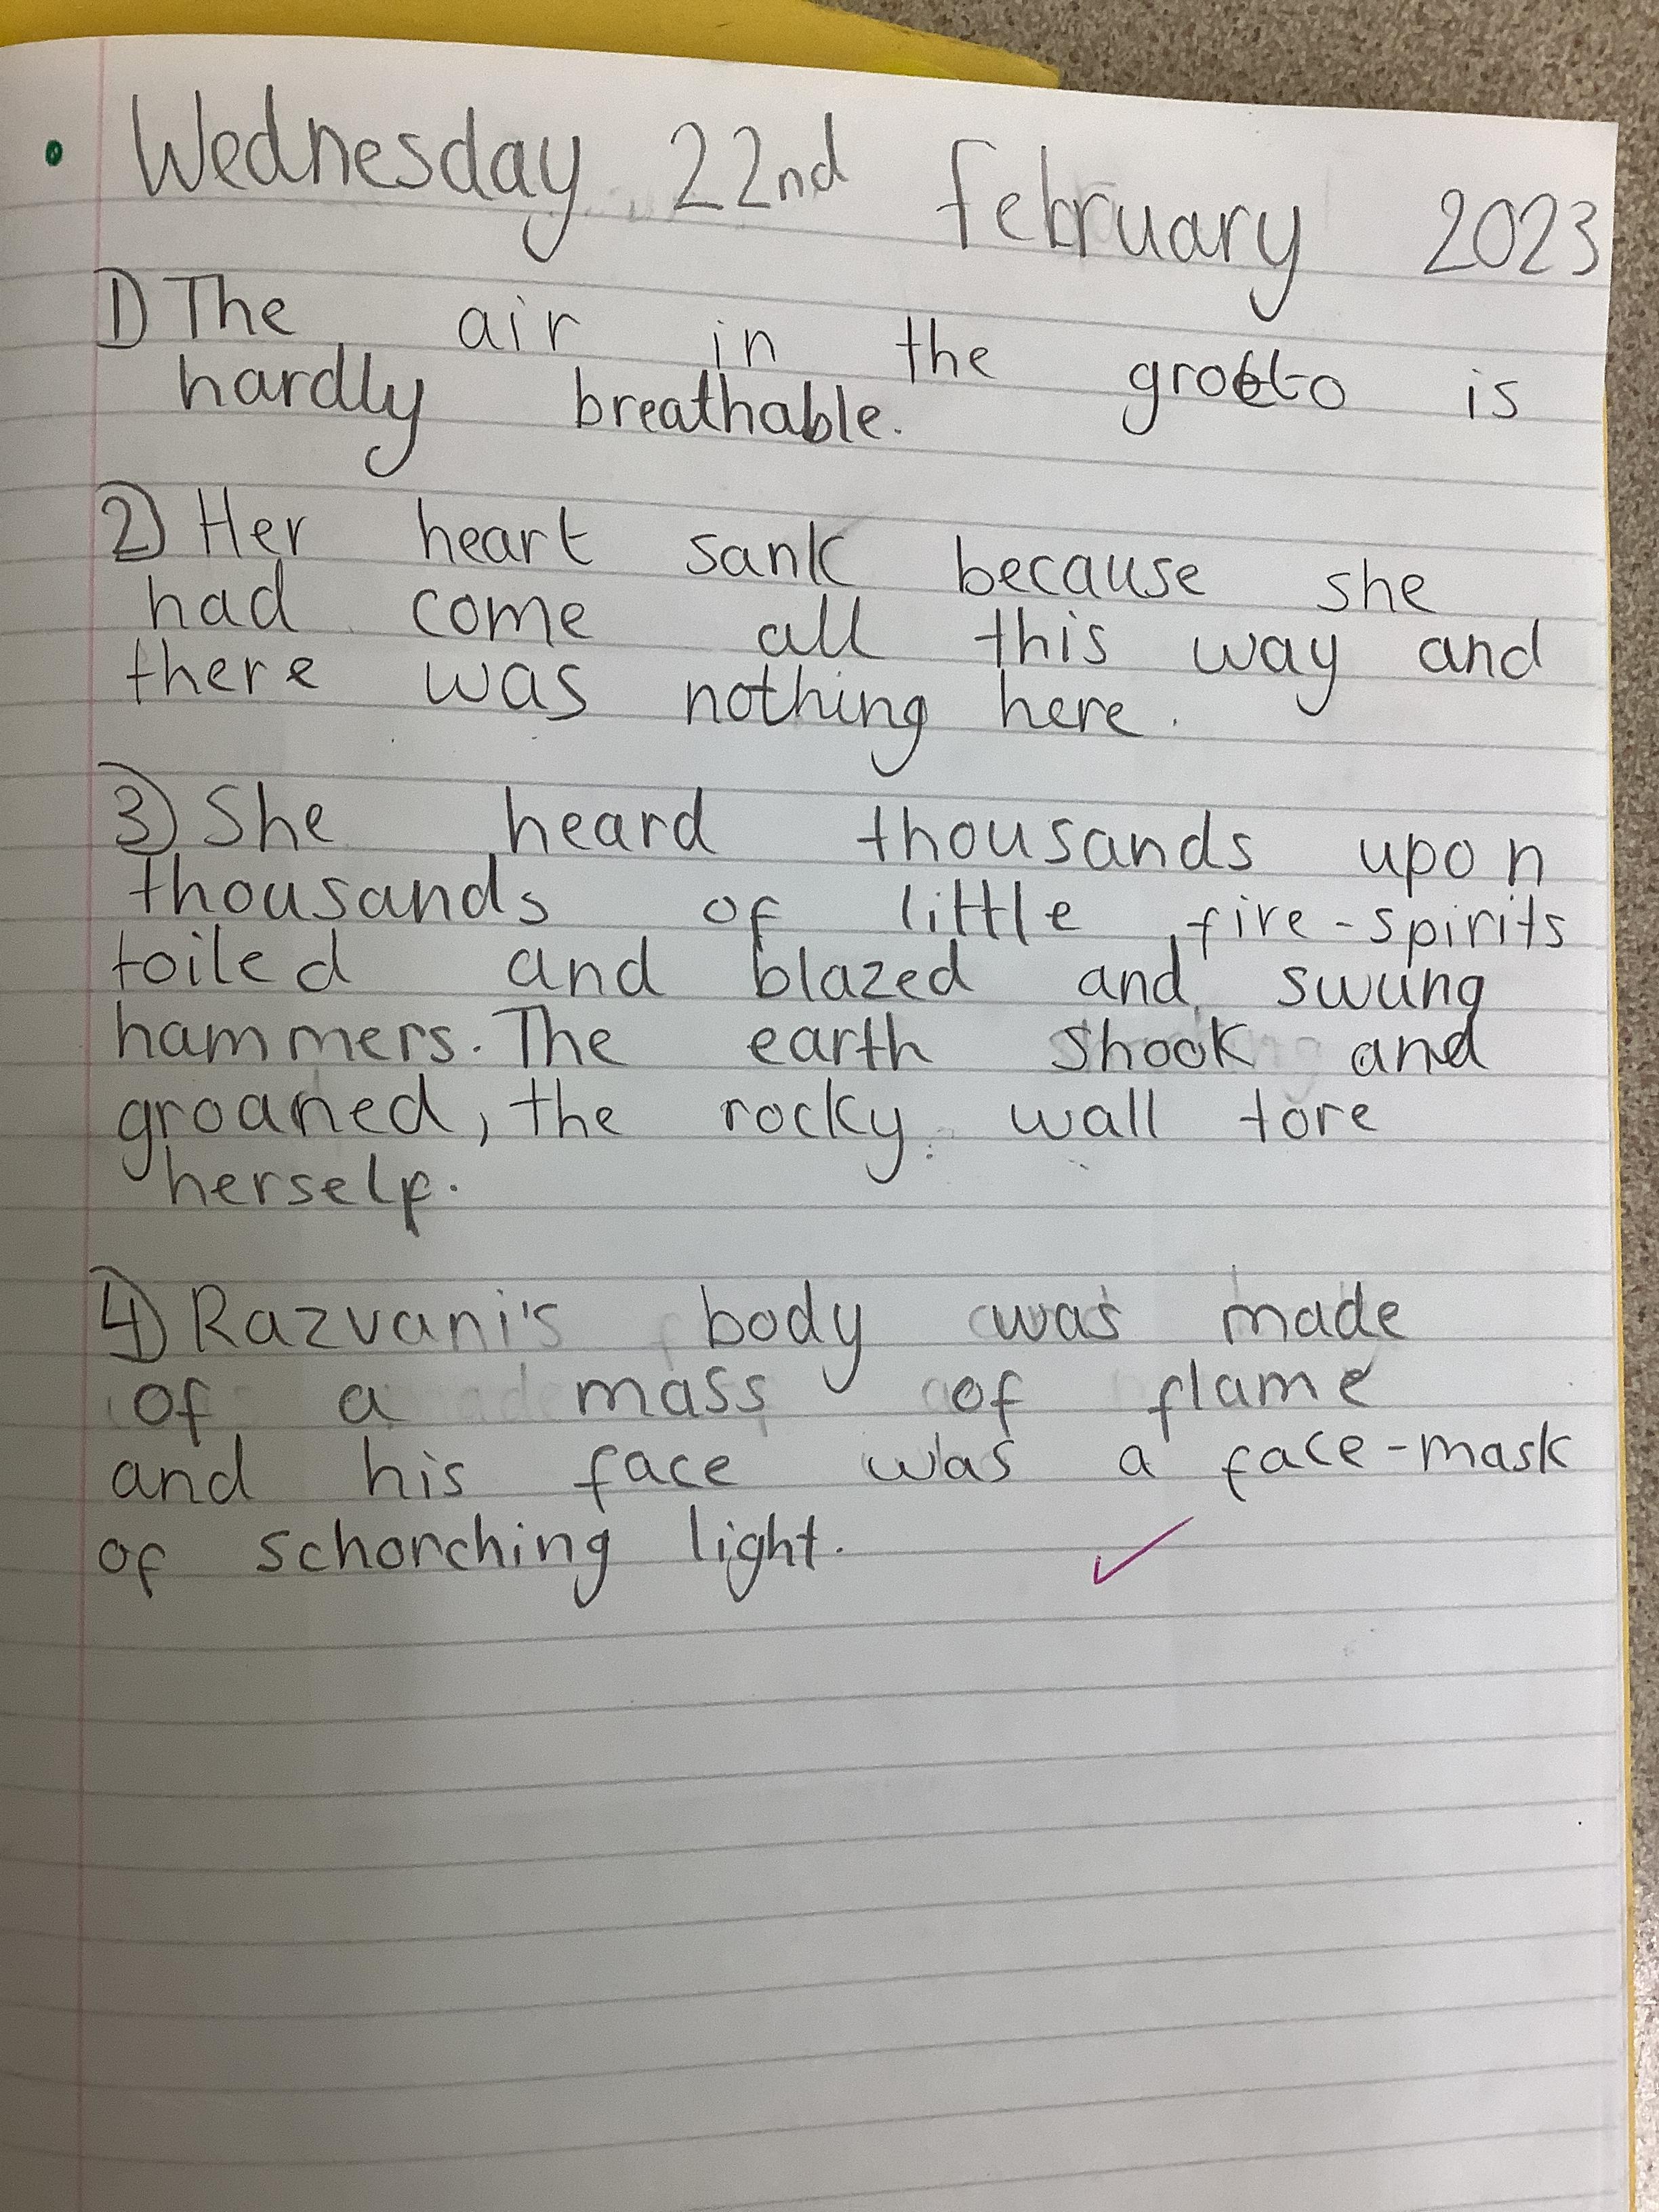 Wednesday 22nd february 2023
1) The air in the grotto is
hardly breathable.
2) Her heart sank because she
had come all this way and
there was nothing here.
3) She heard thousands upon
thousands of little fire-spirits
toiled and blazed and swung
hammers. The earth shook and
groaned, the rocky wall tore
herself.
4) Razvani's body was made
of a mass of flame
and his face was a face-mask
of schorching light.